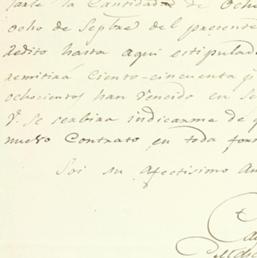 tante la Cantidad de Oche
ocho de Sepbre del presente
redito hasta aqui estipulad
remitira Ciento-cincuenta y
ochocientos han vencido en Se
V. Se serbira indicarme de q
nuevo Contrato en toda for
Soi su afectisimo Am